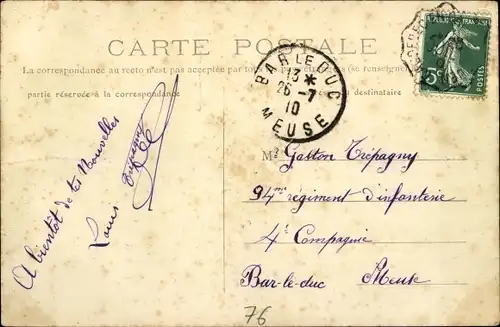 CARTE POSTALE
La correspondance au recto n'est pas acceptée par tous
partie réservée à la correspondance
destinataire
BAR LE DUC
13 *
26 - 7
10
MEUSE
RÉPUBLIQUE FRANÇAISE
5
POSTES
A bientôt de tes Nouvelles
Louis
M. Gaston Trépagny
94me régiment d'infanterie
4e Compagnie
Bar-le-duc Meuse
76